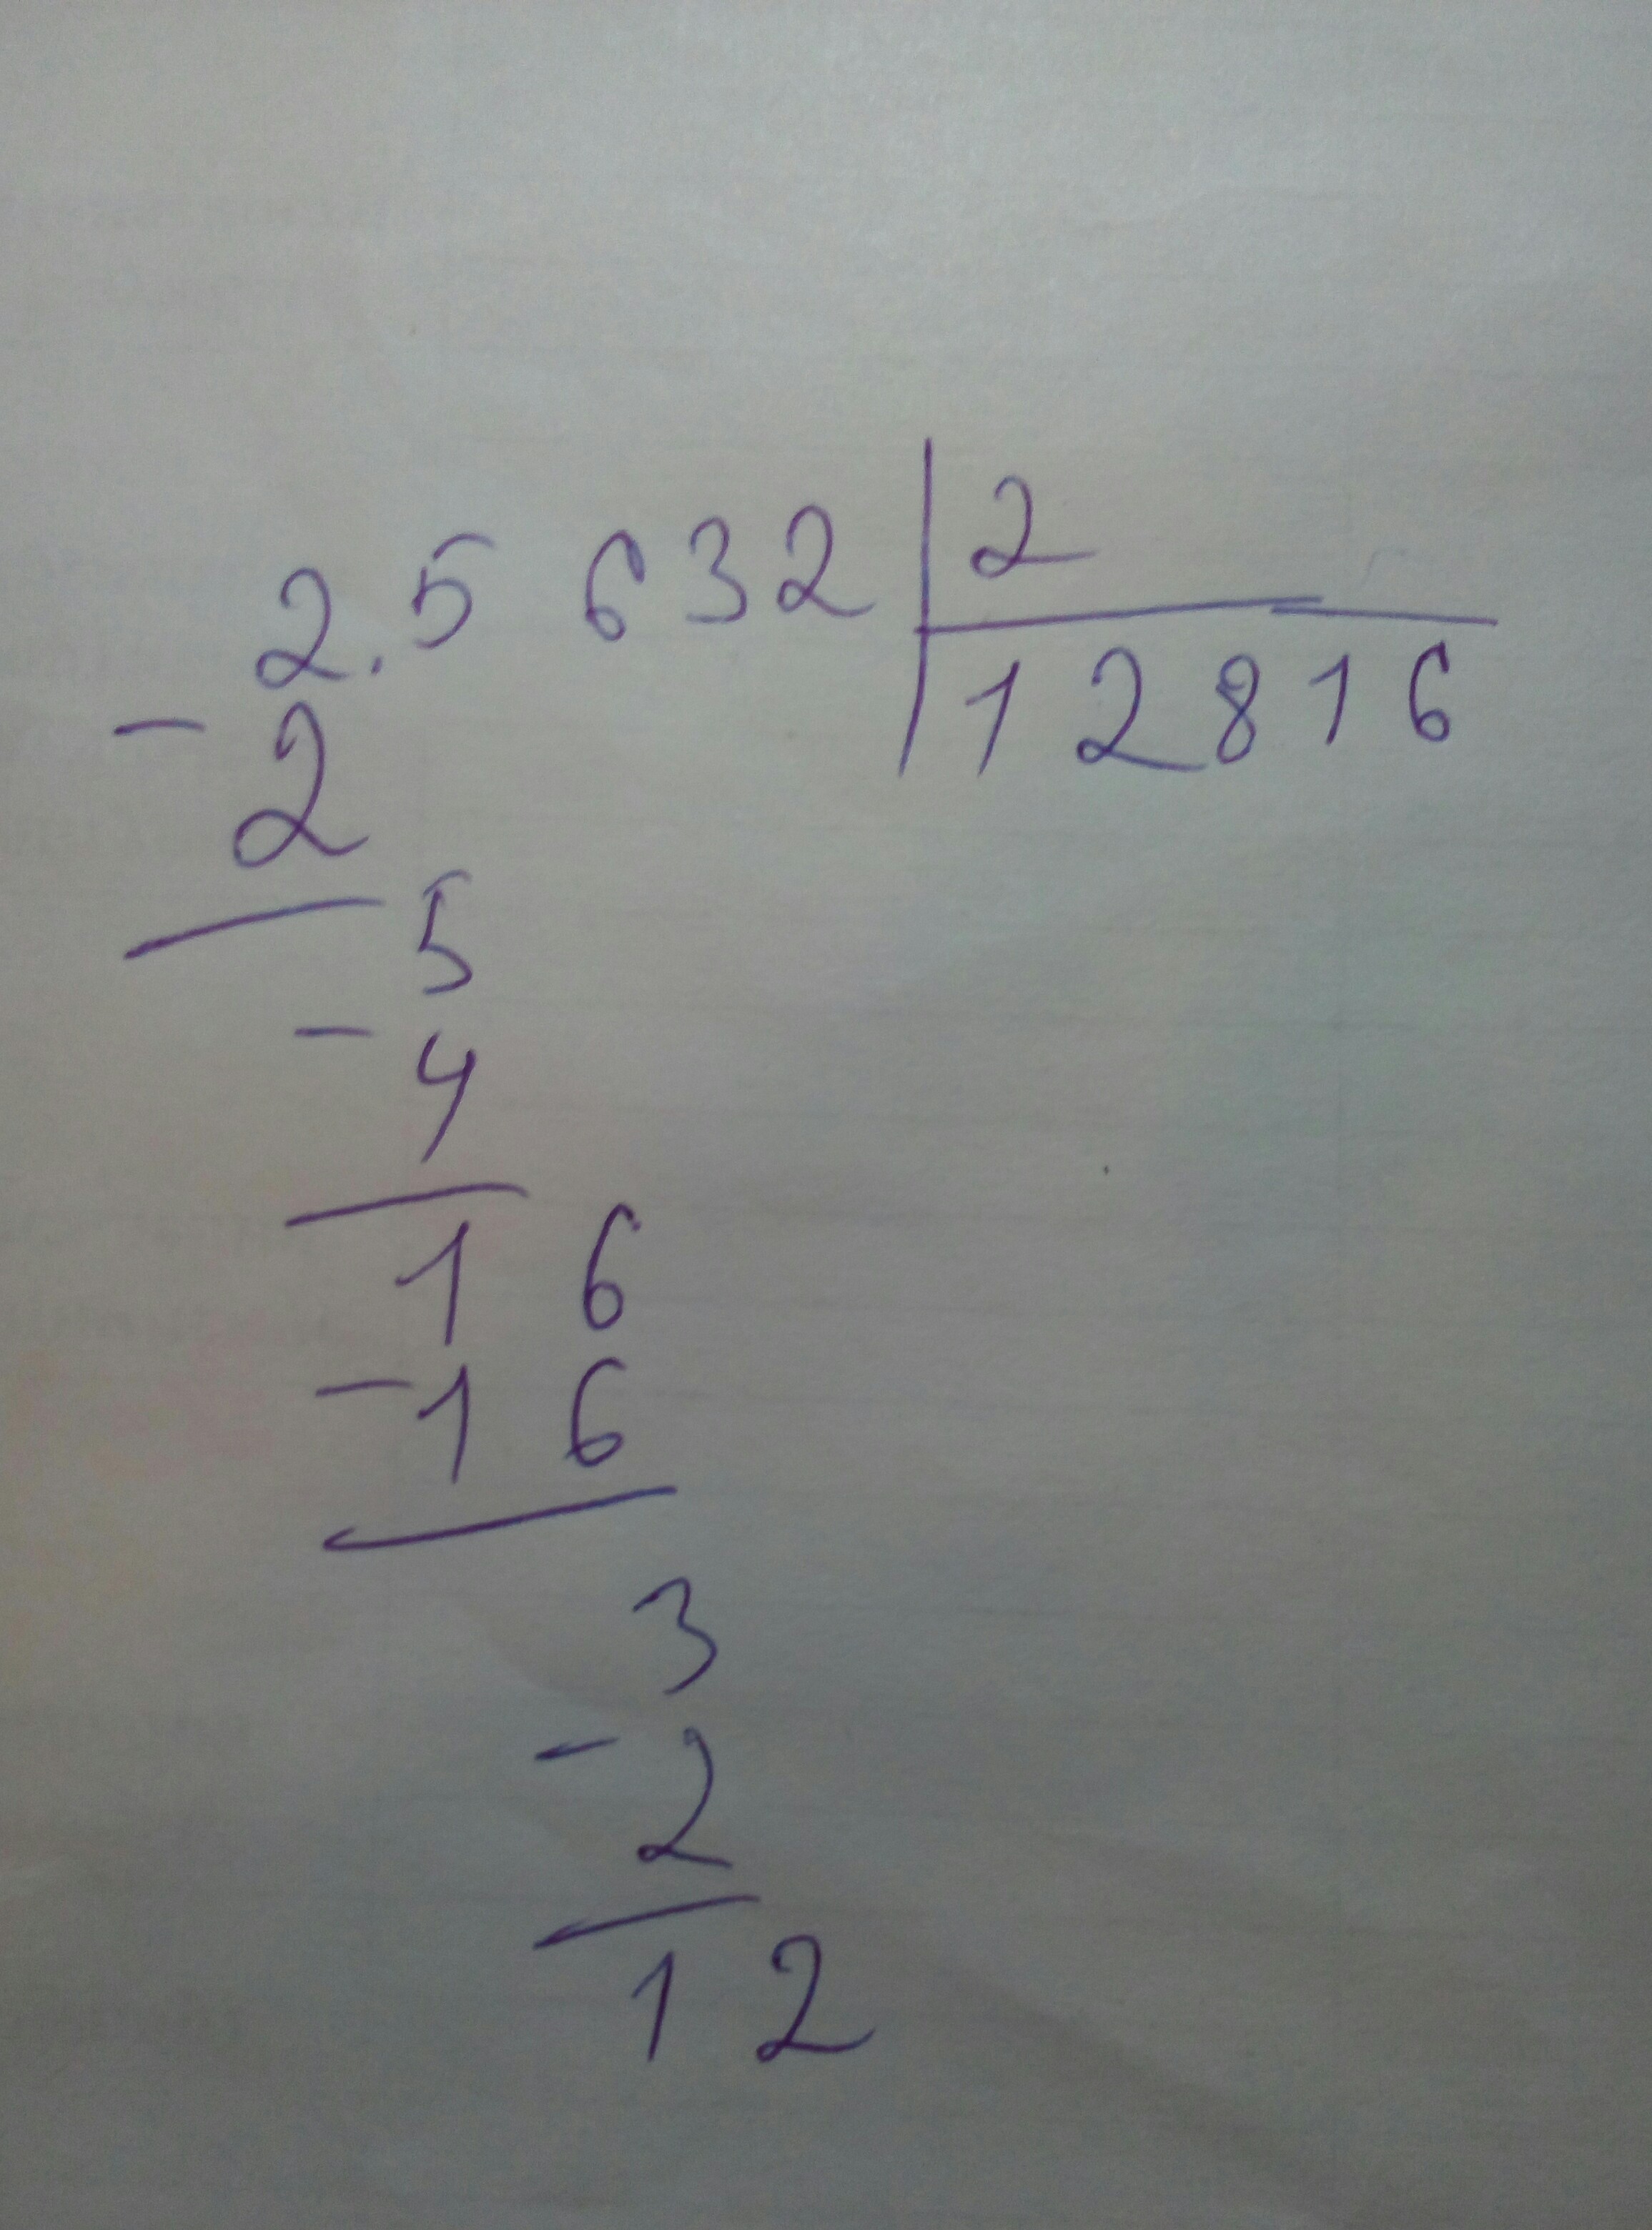 2.5 632 2
12816
- 2
5
- 4
1 6
- 1 6
3
- 2
1 2